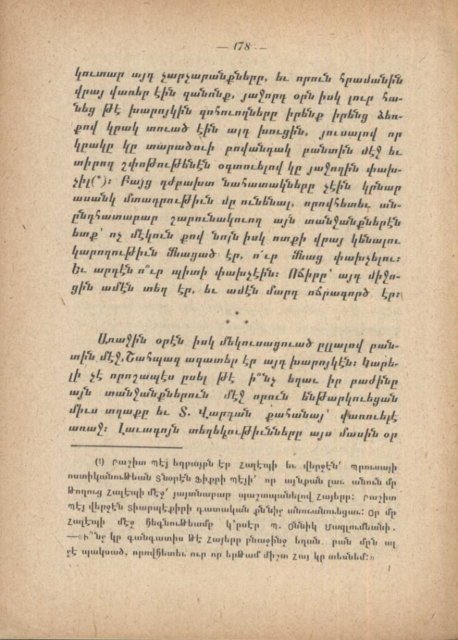 — 178 —
կուտար այդ չարչարանքները, եւ որուն հրամանին
վրայ վառեր էին զանոնք, յաջորդ օրն իսկ լուր հա-
նեց թէ խարոյկին զոհուողները իրենք իրենց ձեռ-
քով կրակ տուած էին այդ խուցին, յուսալով որ
կրակը կը տարածուի բովանդակ բանտին մէջ եւ
տիրող շփոթութենէն օգտուելով կը յաջողին փախ-
չիլ(*)։ Բայց դժբախտ նահատակները չէին կրնար
ասանկ մտադրութիւն մը ունենալ, որովհետեւ ան-
ընդհատաբար շարունակուող այն տանջանքներէն
ետք՝ ոչ մէկուն քով նոյն իսկ ոտքի վրայ կենալու
կարողութիւն մնացած էր, ո՛ւր մնաց փախչելու։
Եւ արդէն ո՞ւր պիտի փախչէին։ Ոճիրը՝ այդ միջո-
ցին ամէն տեղ էր, եւ ամէն մարդ ոճրագործ էր։
* * *
Առաջին օրէն իսկ մեկուսացուած ըլլալով բան-
տին մէջ, Շահպազ ազատեր էր այդ խարոյկէն։ Կարե-
լի չէ որոշապէս ըսել թէ ի՞նչ եղաւ իր բաժինը
այն տանջանքներուն մէջ որուն ենթարկուեցան
միւս տղաքը եւ Տ. Վարդան քահանայ՝ վառուելէ
առաջ։ Լաւագոյն տեղեկութիւնները այս մասին օր
(¹) Րաշիտ Պէյ եղբայրն էր Հալէպի եւ վերջէն՝ Պրուսայի
ոստիկանութեան Տնօրէն Ֆիքրի Պէյի՝ որ այնքան լաւ անուն մը
թողուց Հալէպի մէջ՝ յայտնաբար պաշտպանելով Հայերը։ Րաշիտ
Պէյ վերջէն Տիարպէքիրի դատական քննիչ անուանուեցաւ։ Օր մը
Հալէպի մէջ հեգնութեամբ կ՚ըսէր Պ. Օննիկ Մազլումեանի.
—«Ի՞նչ կը գանգատիս թէ Հայերը բնաջինջ եղան. բան մըն ալ
չէ պակսած, որովհետեւ ուր որ երթամ միշտ Հայ կը տեսնեմ։»